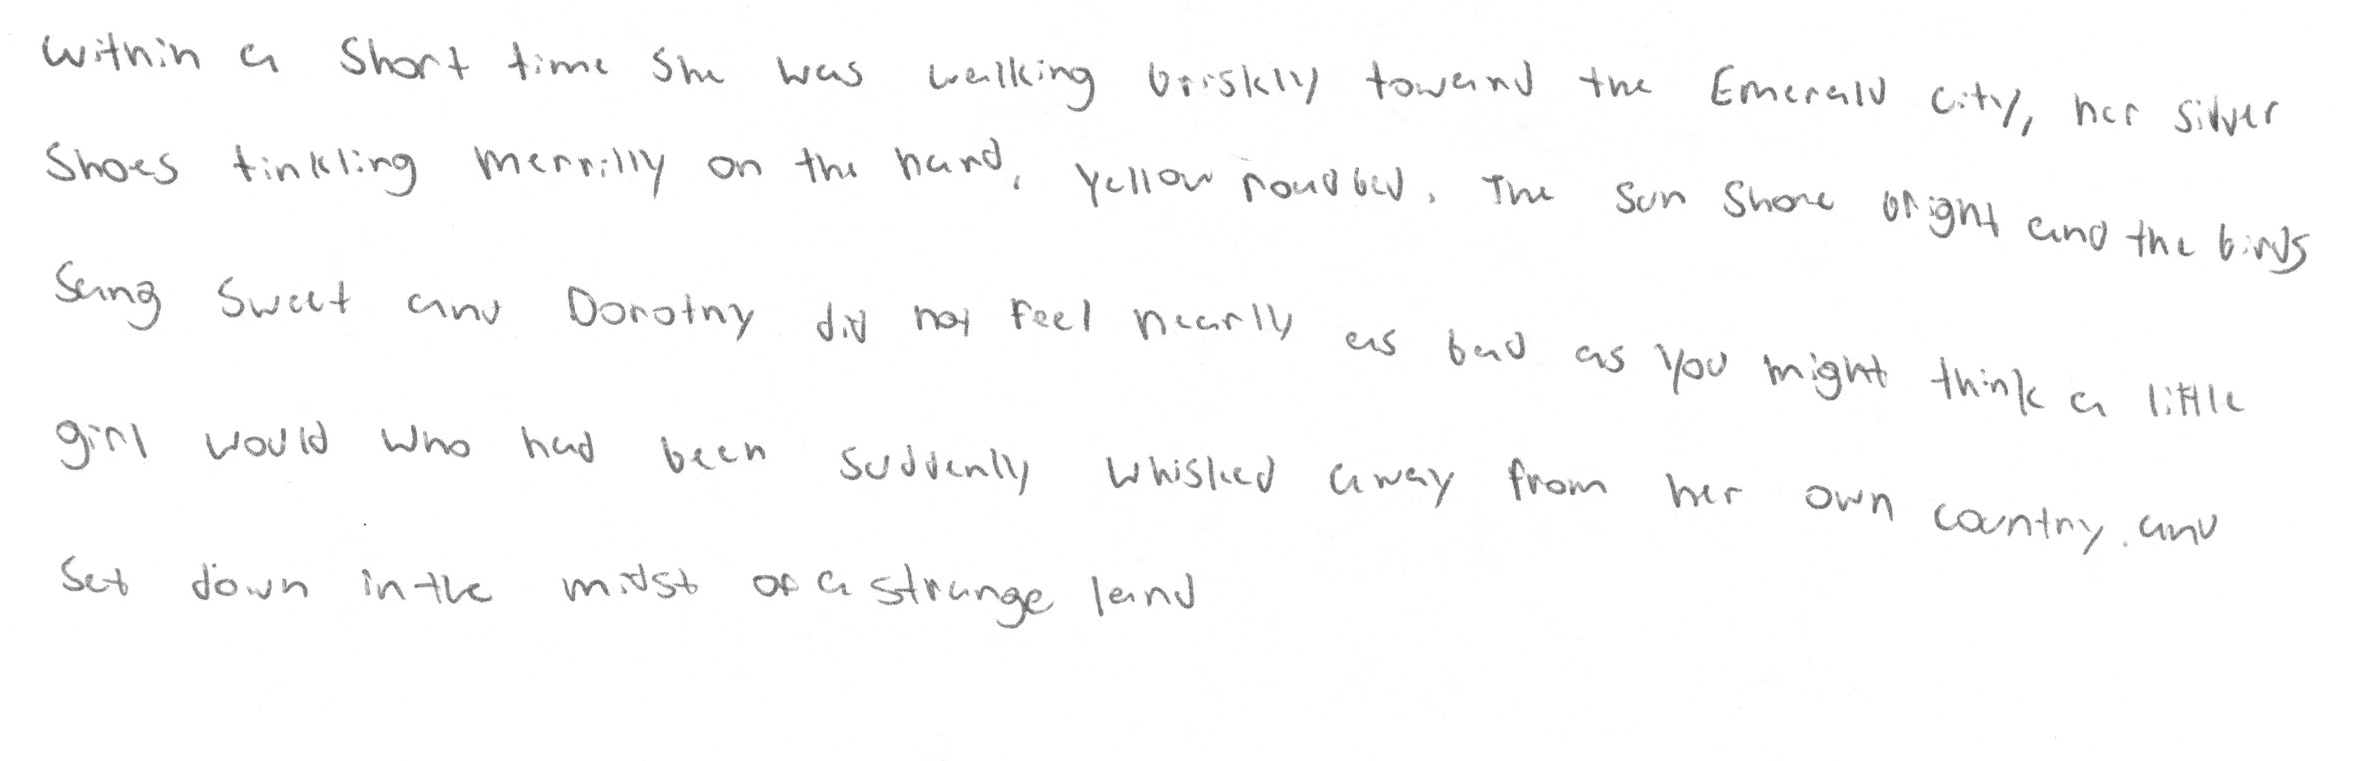 Within a short time she was walking briskly toward the Emerald City, her silver
shoes tinkling merrilly on the hard, yellow roadbed. The sun shone bright and the birds
sang sweet and Dorothy did not feel nearly as bad as you might think a little
girl would who had been suddenly whisked away from her own country. and
set down in the midst of a strange land